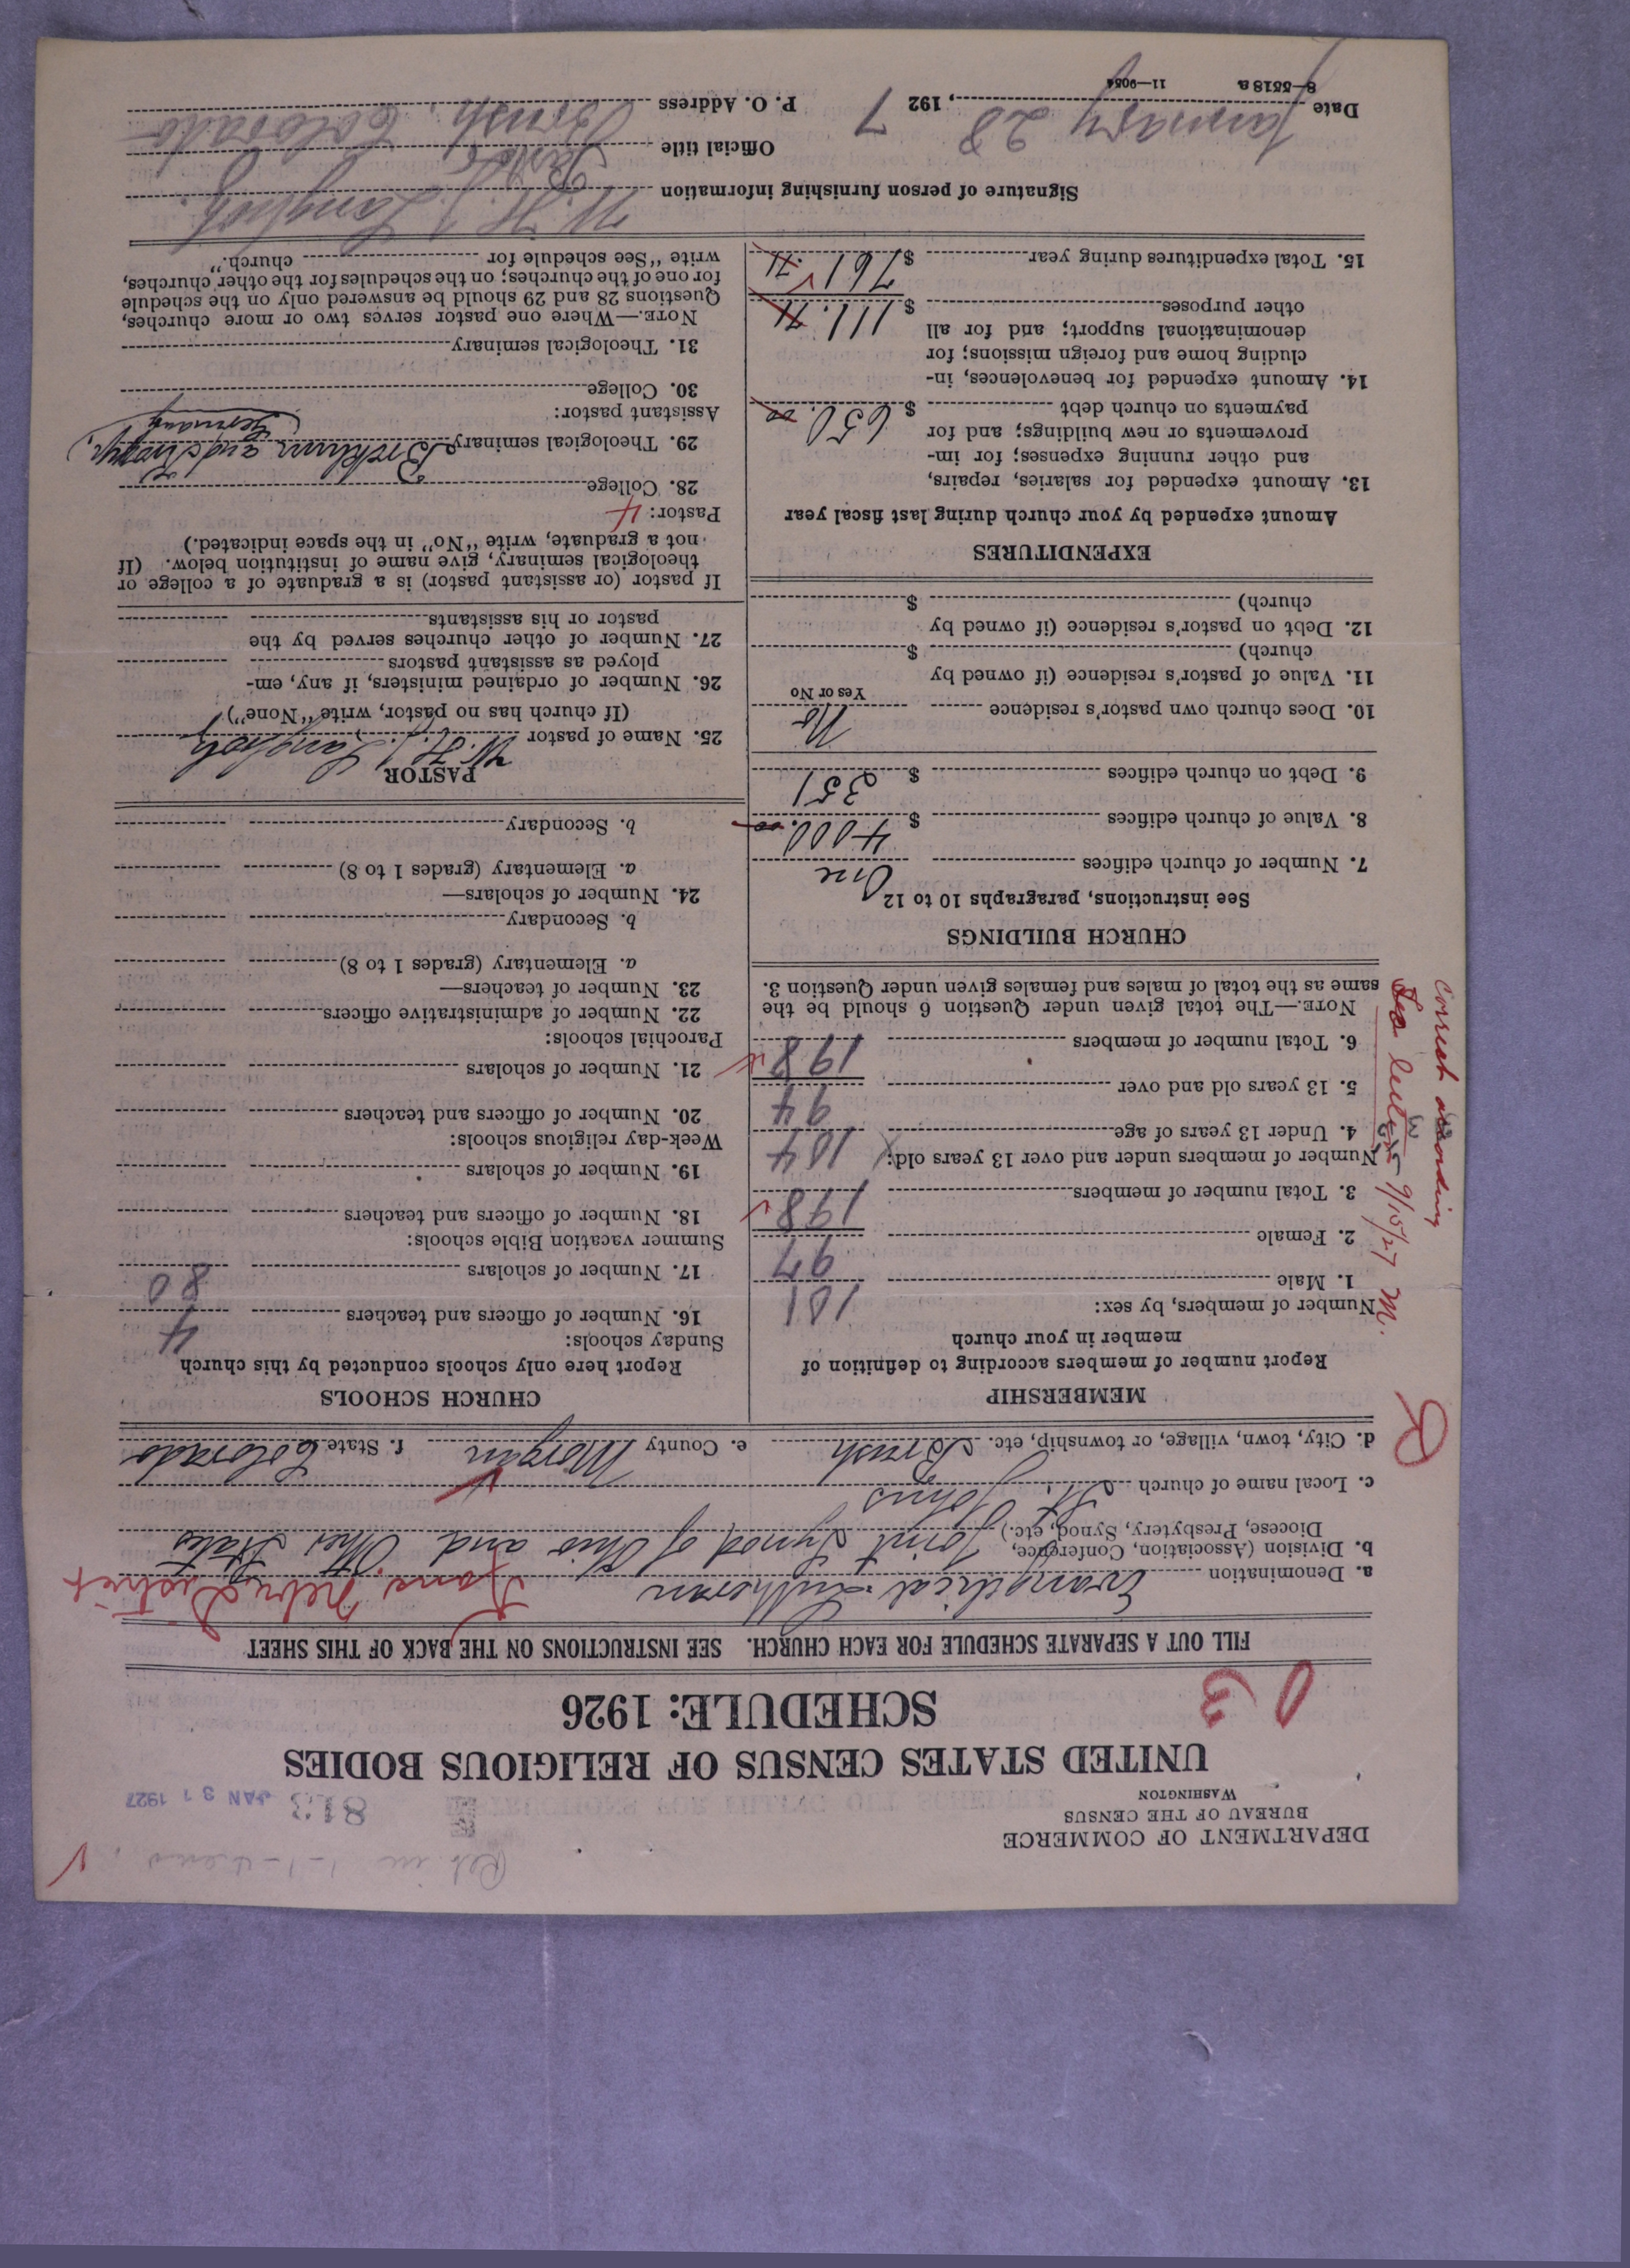 DEPARTMENT OF COMMERCE
BUREAU OF THE CENSUS
WASHINGTON
813 JAN 31 1927
UNITED STATES CENSUS OF RELIGIOUS BODIES
SCHEDULE: 1926
FILL OUT A SEPARATE SCHEDULE FOR EACH CHURCH. SEE INSTRUCTIONS ON THE BACK OF THIS SHEET
a. Denomination Evangelical Lutheran
b. Division (Association, Conference, Diocese, Presbytery, Synod, etc.) Joint Synod of Ohio and Other States
c. Local name of church St. Johns
d. City, town, village, or township, etc. Brush e. County Morgan f. State Colorado
R
MEMBERSHIP
Report number of members according to definition of
member in your church
Number of members, by sex:
1. Male 101
2. Female 97
3. Total number of members 198
Number of members under and over 13 years old:
4. Under 13 years of age 104
5. 13 years old and over 94
6. Total number of members 198
NOTE.—The total given under Question 6 should be the
same as the total of males and females given under Question 3.
Correct according
9/15/27 M.
CHURCH BUILDINGS
See instructions, paragraphs 10 to 12
7. Number of church edifices One
8. Value of church edifices $ 4000.00
9. Debt on church edifices $ 351
10. Does church own pastor's residence No
Yes or No
11. Value of pastor's residence (if owned by
church) $
12. Debt on pastor's residence (if owned by
church) $
EXPENDITURES
Amount expended by your church during last fiscal year
13. Amount expended for salaries, repairs,
and other running expenses; for im-
provements or new buildings; and for
payments on church debt $ 650.00
14. Amount expended for benevolences, in-
cluding home and foreign missions; for
denominational support; and for all
other purposes $ 111.71
15. Total expenditures during year $ 761.71
CHURCH SCHOOLS
Report here only schools conducted by this church
Sunday schools:
16. Number of officers and teachers 4
17. Number of scholars 80
Summer vacation Bible schools:
18. Number of officers and teachers
19. Number of scholars
Week-day religious schools:
20. Number of officers and teachers
21. Number of scholars
Parochial schools:
22. Number of administrative officers
23. Number of teachers—
a. Elementary (grades 1 to 8)
b. Secondary
24. Number of scholars—
a. Elementary (grades 1 to 8)
b. Secondary
PASTOR
25. Name of pastor W. H. J. Langholz
(If church has no pastor, write "None")
26. Number of ordained ministers, if any, em-
ployed as assistant pastors
27. Number of other churches served by the
pastor or his assistants
If pastor (or assistant pastor) is a graduate of a college or
theological seminary, give name of institution below. (If
not a graduate, write "No" in the space indicated.)
Pastor: 4
28. College
29. Theological seminary Breklum and Kropp,
Germany
Assistant pastor:
30. College
31. Theological seminary
NOTE.—Where one pastor serves two or more churches,
Questions 28 and 29 should be answered only on the schedule
for one of the churches; on the schedules for the other churches,
write "See schedule for church."
Signature of person furnishing information W. H. J. Langholz
Official title Pastor
Date January 28, 1927 P. O. Address Brush, Colorado
8—5518 a 11—9054